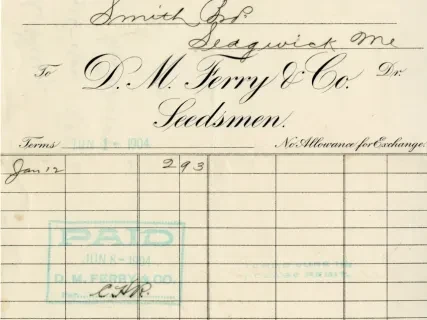 Smith Bro.
Sedgwick Me
To D. M. Ferry & Co. Dr.
Seedsmen.
Terms JUN 1 - 1904 No Allowance for Exchange.
Jan 12 2 93
PAID
JUN 8 - 1904
D. M. FERRY & CO.
C.H.R.